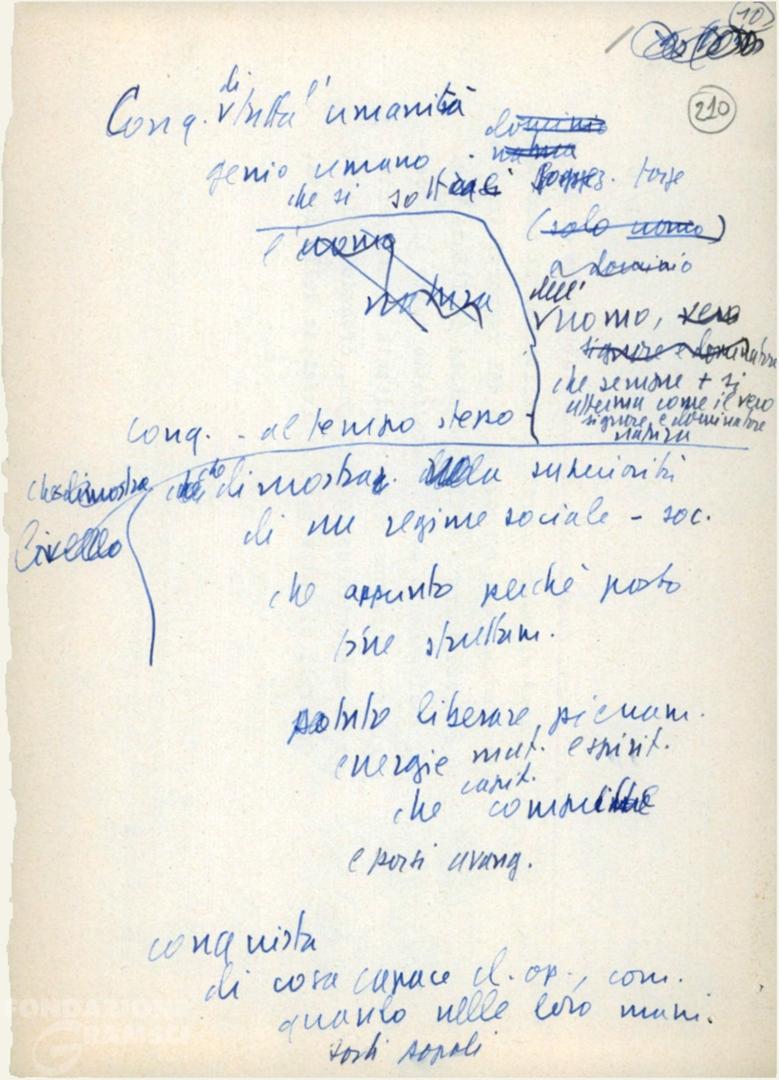 10
210
Conq. di tutta l'umanità
genio umano. dominio
natura
che si sottrasse forze
(solo uomo)
l'uomo
a dominio
natura
dell'
uomo, vero
signore e dominatore
che sempre + si
afferma come il vero
signore e dominatore
natura
conq. - al tempo stesso
che dimostra
che dimostra la superiorità
Livello
di un regime sociale - soc.
che appunto perché posto
fine sfruttam.
potuto liberare pienam.
energie mat. e spirit.
capit.
che comprime
e porsi avang.
conquista
di cosa capace cl. op., com.
quando nelle loro mani.
sorti popoli
FONDAZIONE
GRAMSCI